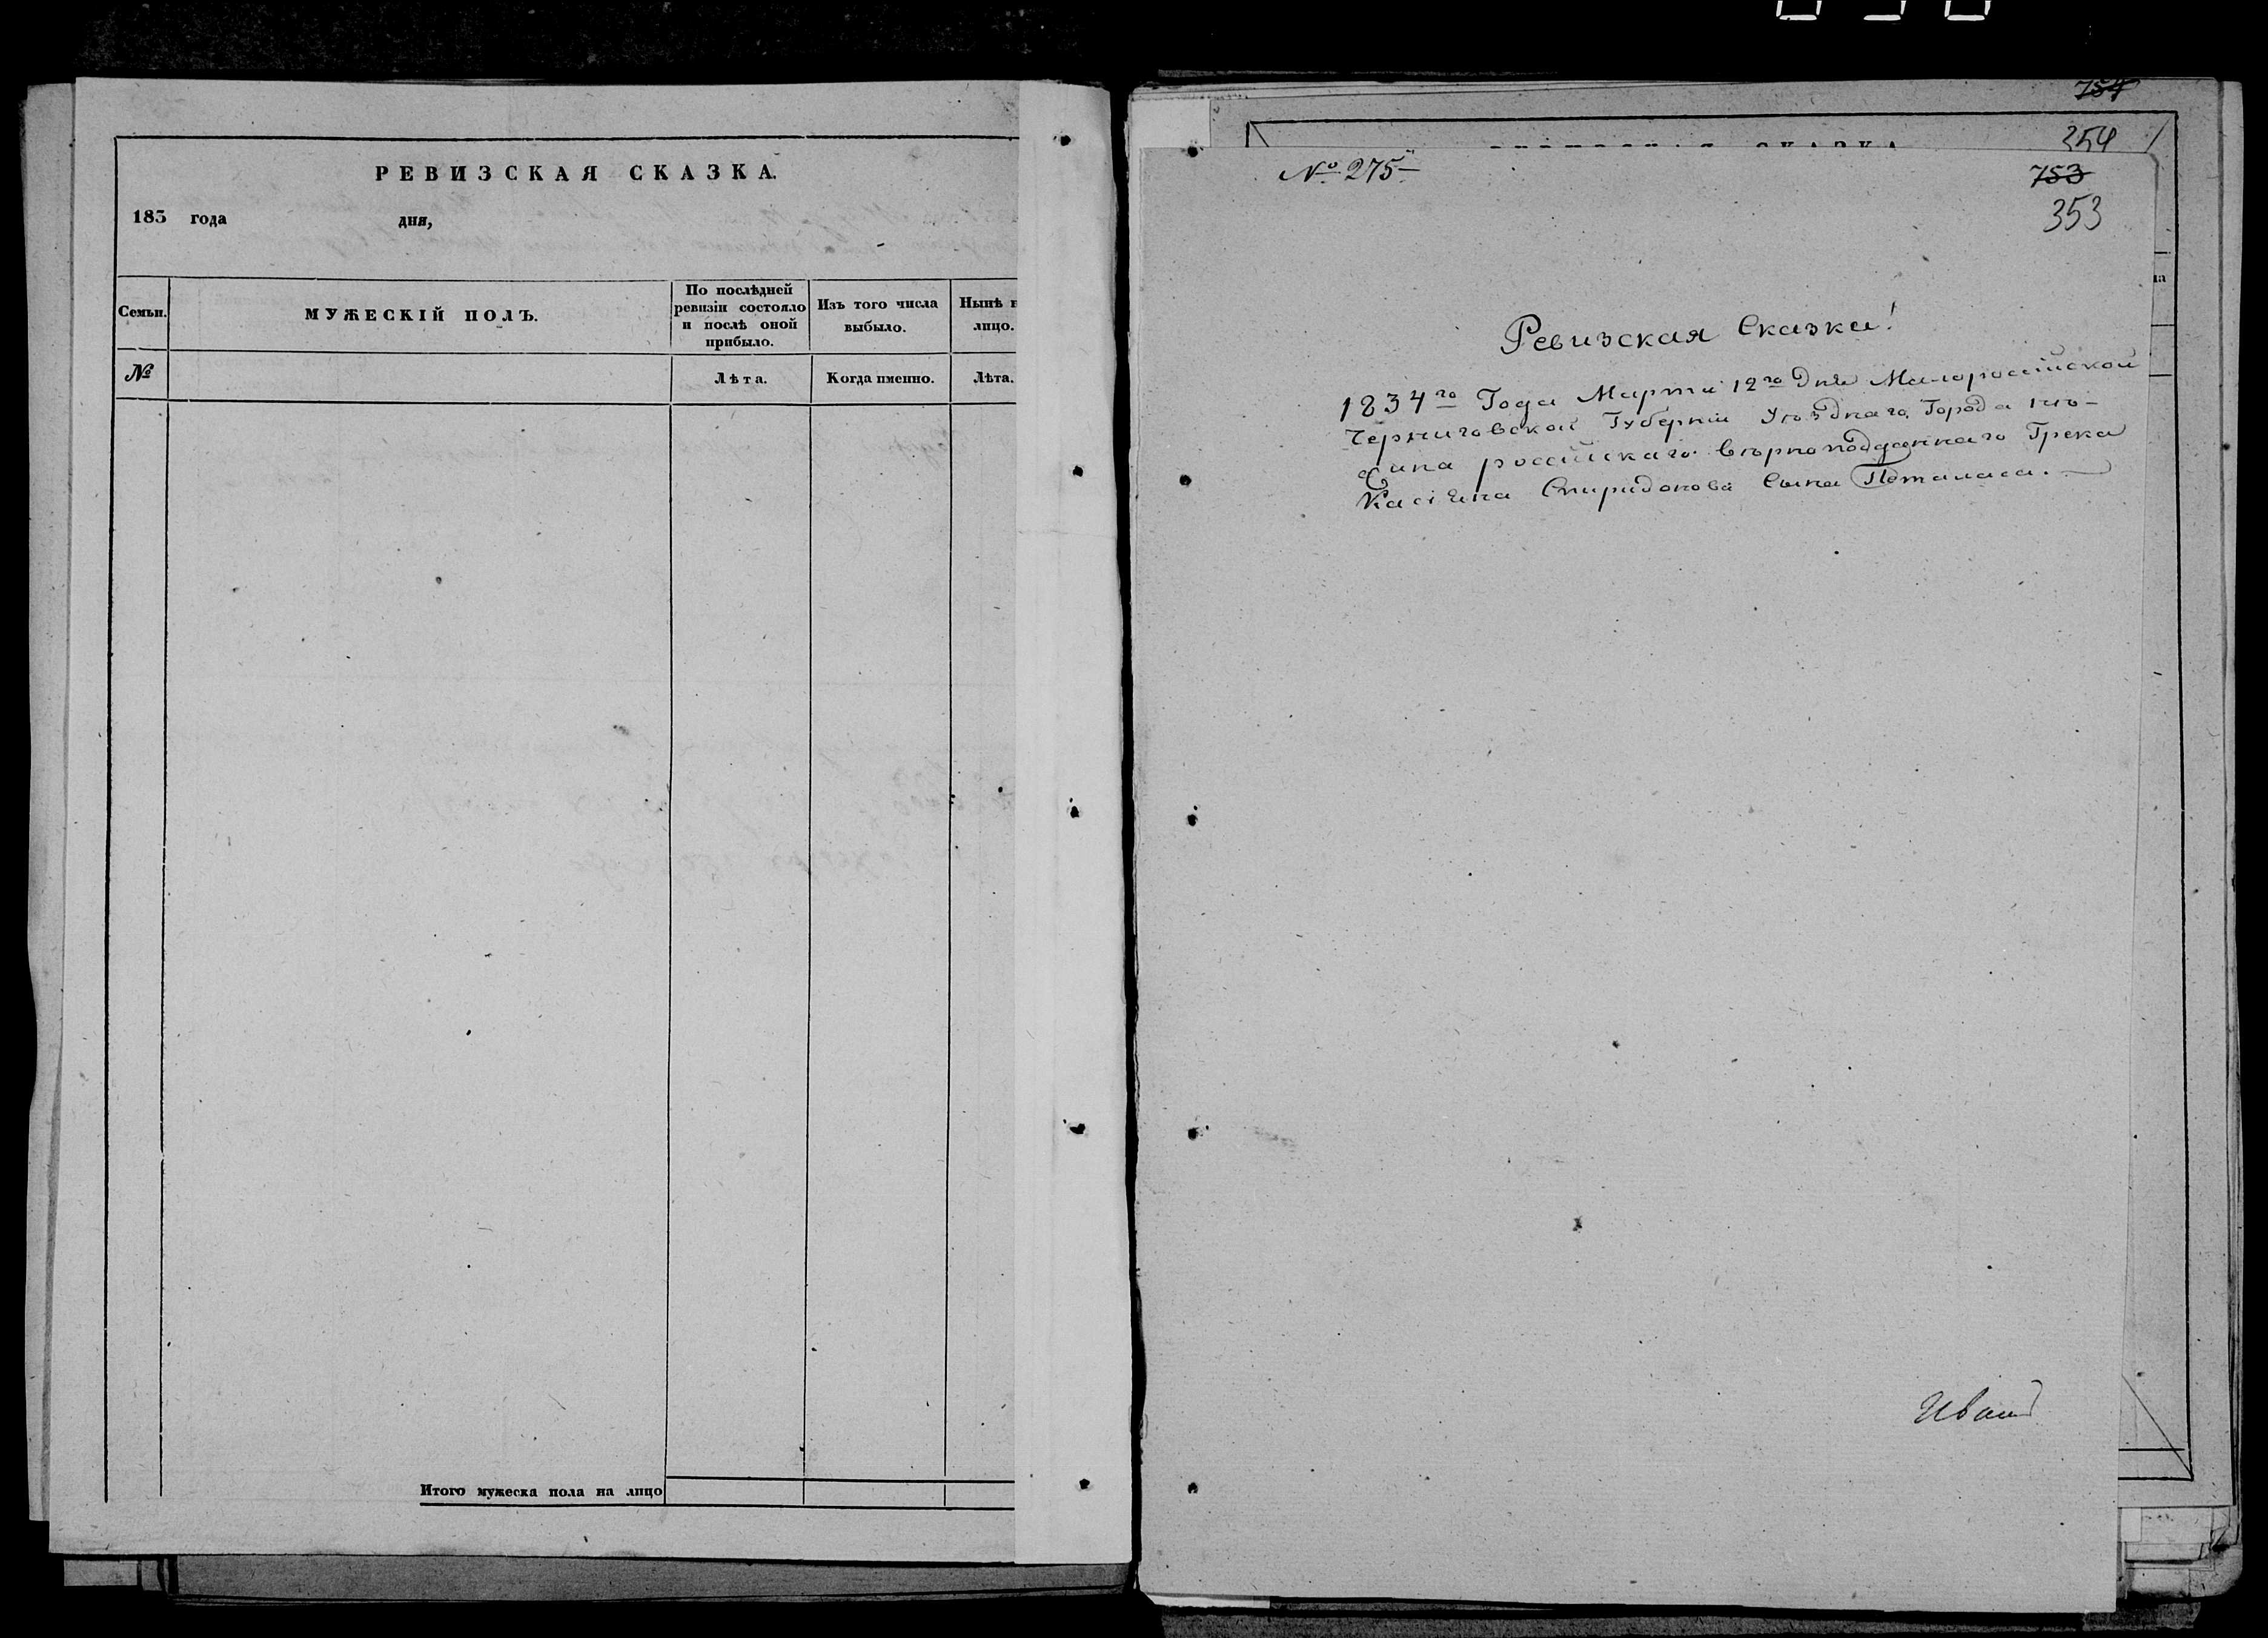 РЕВИЗСКАЯ СКАЗКА.
183 года дня,
Семьи.
МУЖЕСКІЙ ПОЛЪ.
По послѣдней
ревизіи состояло
и послѣ оной
прибыло.
Изъ того числа
выбыло.
Нынѣ н
лицо.
№
Лѣта.
Когда именно.
Лѣта.
Итого мужеска пола на лицо
754
354
№ 275
753
353
Ревизская Сказка!
1834го Года Марта 12го Дня Малороссійской
Черниговской Губерніи Уѣзднаго Города Нѣ-
жина россійскаго вѣрноподданнаго Грека
Спиридонова Сына
Иванъ